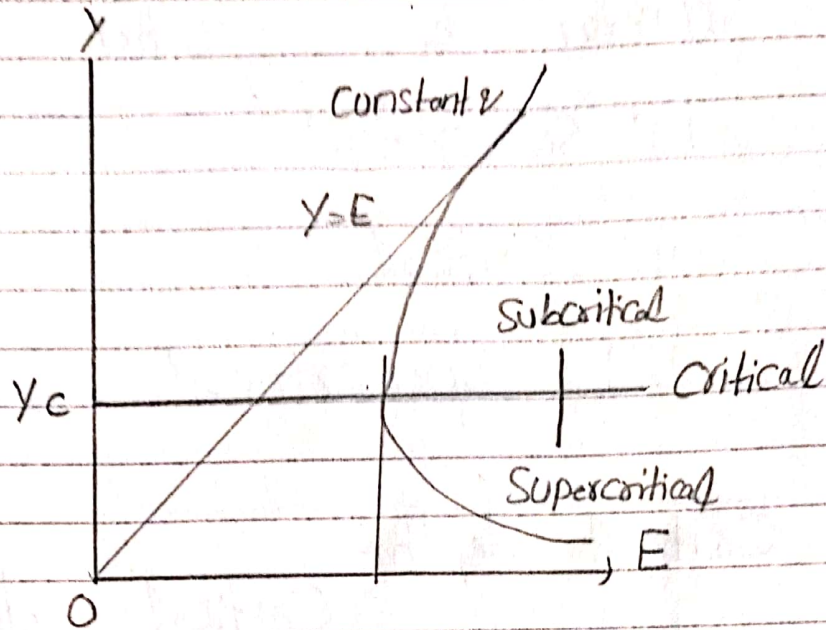 Y
Constant q
Y=E
Subcritical
Yc
Critical
Supercritical
E
O